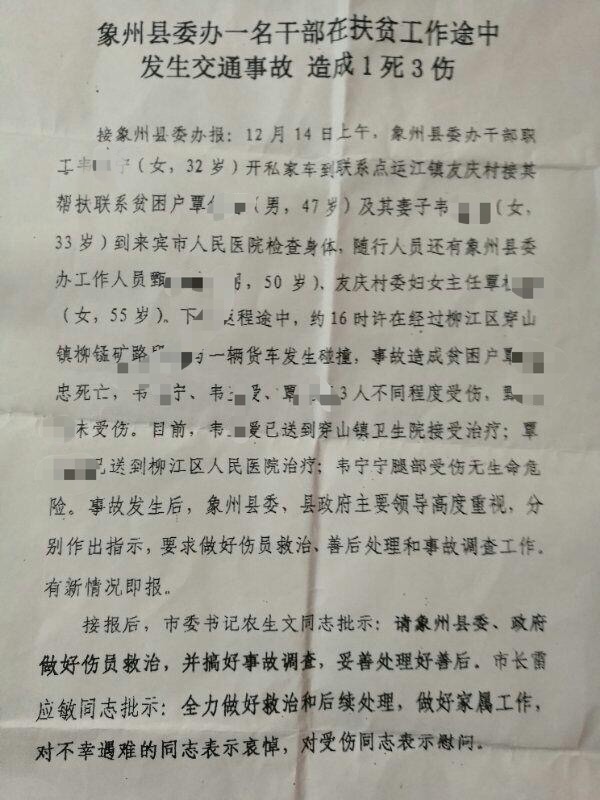 象州县委办一名干部在扶贫工作途中
发生交通事故 造成1死3伤
接象州县委办报：12月14日上午，象州县委办干部职
工韦 （女，32岁）开私家车到联系点运江镇友庆村接其
帮扶联系贫困户覃 （男，47岁）及其妻子韦 （女，
33岁）到来宾市人民医院检查身体，随行人员还有象州县委
办工作人员甄 ，50岁）、友庆村委妇女主任覃
（女，55岁）。下 程途中，约16时许在经过柳江区穿山
镇柳锰矿路 一辆货车发生碰撞，事故造成贫困户覃
忠死亡，韦 宁、韦 爱、覃 3人不同程度受伤，甄
未受伤。目前，韦 爱已送到穿山镇卫生院接受治疗；覃
已送到柳江区人民医院治疗；韦宁宁腿部受伤无生命危
险。事故发生后，象州县委、县政府主要领导高度重视，分
别作出指示，要求做好伤员救治、善后处理和事故调查工作。
有新情况即报。
接报后，市委书记农生文同志批示：请象州县委、政府
做好伤员救治，并搞好事故调查，妥善处理好善后。市长雷
应敏同志批示：全力做好救治和后续处理，做好家属工作，
对不幸遇难的同志表示哀悼，对受伤同志表示慰问。